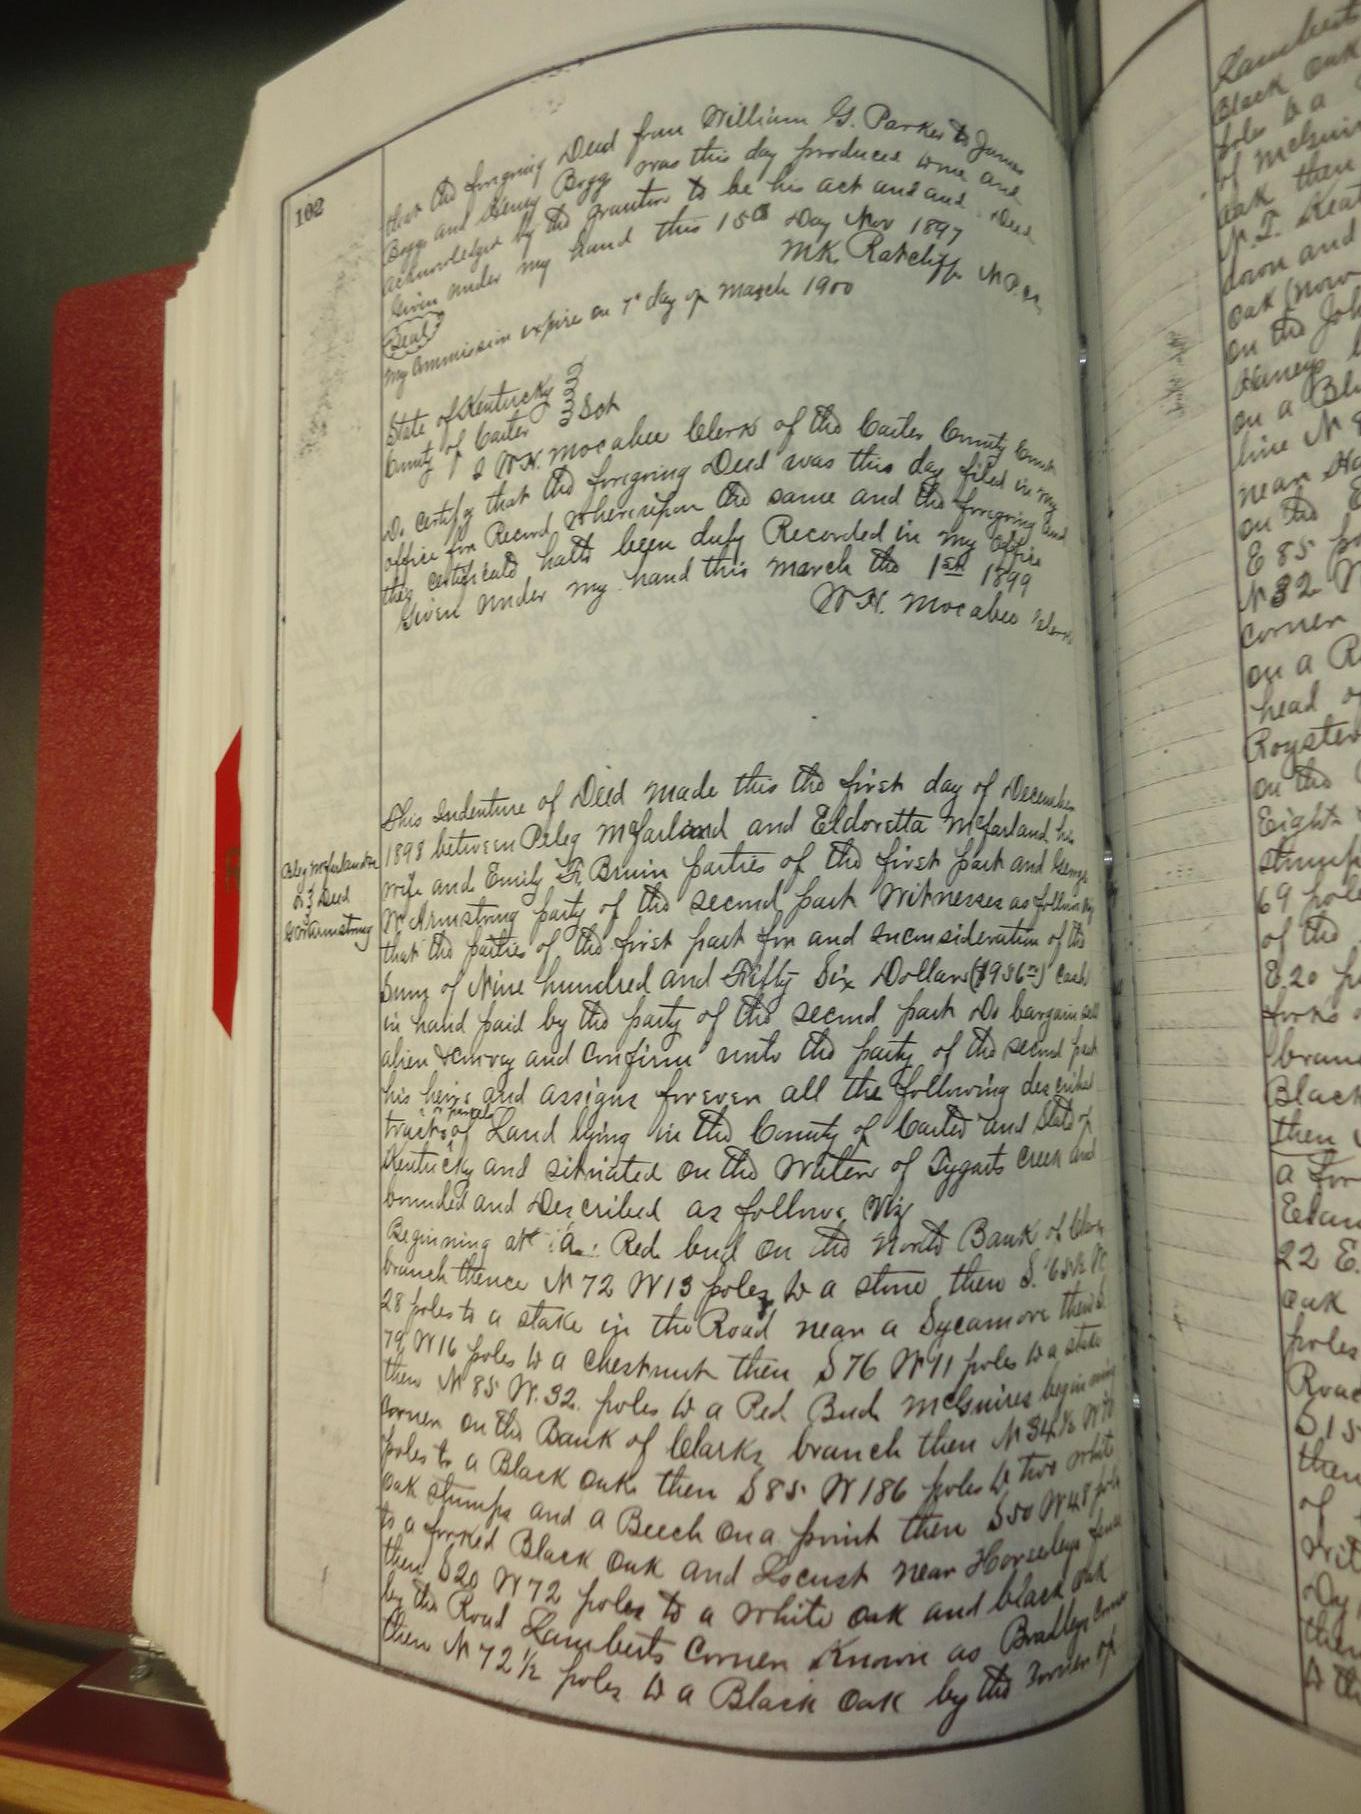 102
that the foregoing Deed from William G. Parker to James
Boggs and Henry Boggs was this day produced to me and
acknowledged by the grantor to be his act and and Deed
Given under my hand this 15th Day Nov 1897
M.K. Ratcliff N.P.
Seal
My Commission expire on 7" day of March 1900
State of Kentucky
County of Carter Sct
I W.H. Mocabee Clerk of the Carter County Court
Do certify that the foregoing Deed was this day filed in my
office for Record whereupon the same and the foregoing and
this certificate hath been duly Recorded in my office
Given under my hand this March the 1st 1899
W.H. Mocabee Clerk
Peleg McFarland
&3 Deed
Geo W Armstrong
This Indenture of Deed made this the first day of December
1898 between Peleg McFarland and Eldoretta McFarland his
wife and Emily F. Bruin parties of the first part and George
W. Armstrong party of the second part Witnesses as follows viz
that the parties of the first part for and inconsideration of the
Sum of Nine hundred and Fifty Six Dollars ($956) cash
in hand paid by the party of the second part Do bargain sell
alien & convey and confirm unto the party of the second part
his heirs and assigns forever all the following described
tracts or parcels of Land lying in the County of Carter and State of
Kentucky and situated on the Waters of Tygarts Creek and
bounded and described as follows Viz
Beginning at a Red bud on the North Bank of Clark
branch thence N 72 W 13 poles to a stone then S.
28 poles to a stake in the Road near a Sycamore then S.
79 W 16 poles to a Chestnut then S 76 W 11 poles to a stake
then N 85 W. 32 poles to a Red Bud McGuires beginning
corner on the Bank of Clarks branch then N 34 1/2 W
poles to a Black oak then S 85 W 186 poles to two white
oak stumps and a Beech on a point then S 50 W 48 poles
to a forked Black Oak and Locust near Horseleys fence
then S 20 W 72 poles to a White oak and black oak
by the Road Lamberts Corner Known as Bradleys Corner
then N 72 1/2 poles to a Black Oak by the Corner of
Lambert
Black Oak
poles to a
of McGuire
oak then
down and
Oak (now
on the Joh
on a Bl
line N
near
on the
E 85 po
N 32
Corner
on a R
head o
Royster
on the
Eight
stump
69 pole
of the
E. 20 p
forks
bran
Black
then
a for
22 E.
oak
poles
Road
S. 15
then
of